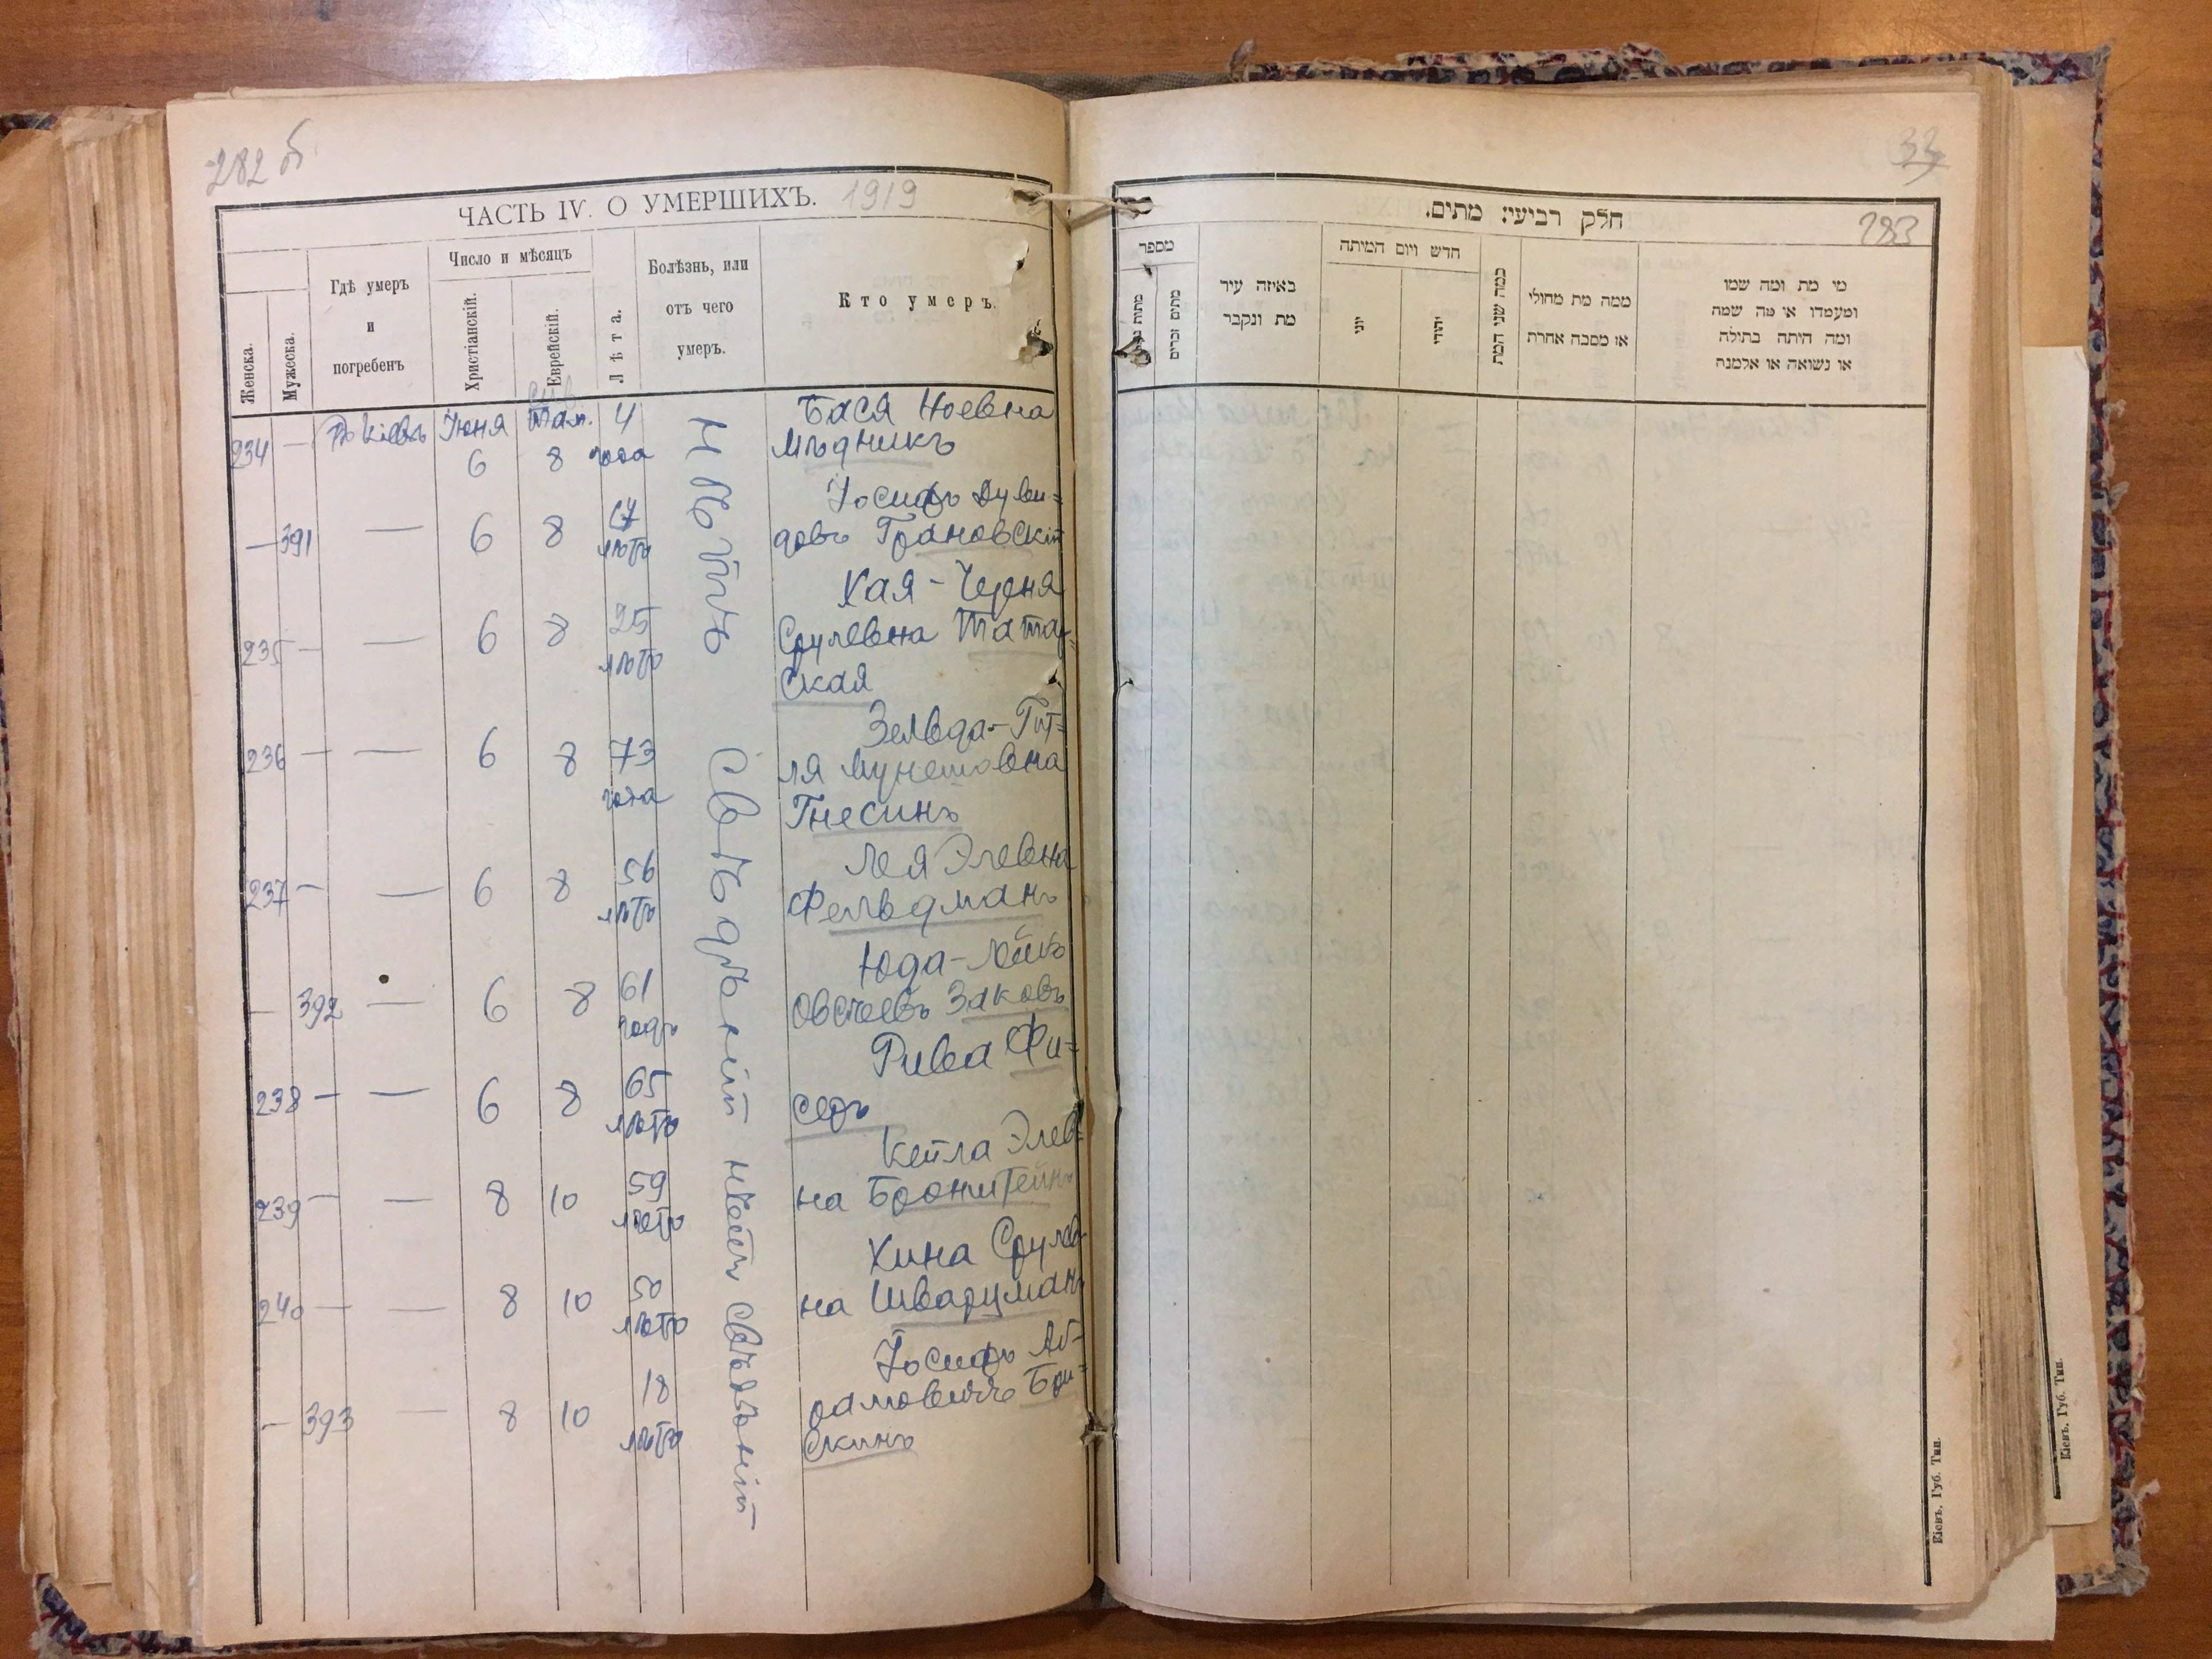 282 б
ЧАСТЬ IV. О УМЕРШИХЪ. 1919
Женска.
Мужеска.
Гдѣ умеръ
и
погребенъ
Число и мѣсяцъ
Христіанскій.
Еврейскій.
Лѣта.
Болѣзнь, или
отъ чего
умеръ.
Кто умеръ.
234 — Въ Кіевѣ Іюня 6 Там. 8 4 года
Бася Ноевна
Мѣдникъ
— 391 — 6 8 67 лѣтъ
Іосифъ Дуви=
довъ Грановскій
235 — 6 8 25 лѣтъ
Хая-Черня
Срулевна Татар=
ская
236 — — 6 8 73 года
Зельда-Гит=
ля
Гнесинъ
237 — — 6 8 56 лѣтъ
Лея Элевна
Фельдманъ
— 392 — 6 8 61 годъ
Юда-Лейб
Овсѣевъ Заковъ
238 — — 6 8 65 лѣтъ
Рива Фи=
серъ
239 — — 8 10 59 лѣтъ
Кейла Элев=
на Бронштейнъ
240 — — 8 10 50 лѣтъ
Хина Срулев
на Шварцманъ
— 393 — 8 10 18 лѣтъ
Іосифъ Аб-
рамовичъ Бри=
скинъ
33
283
חלק רביעי: מתים.
מספר
מתים זכרים
באיזה עיר
מת ונקבר
חדש ויום המיתה
יוני
יהודי
כמה שני המת
ממה מת מחולי
או מסבה אחרת
מי מת ומה שמו
ומעמדו או מה שמה
ומה היתה בתולה
או נשואה או אלמנה
Кіевъ. Губ. Тип.
Кіевъ. Губ. Тип.